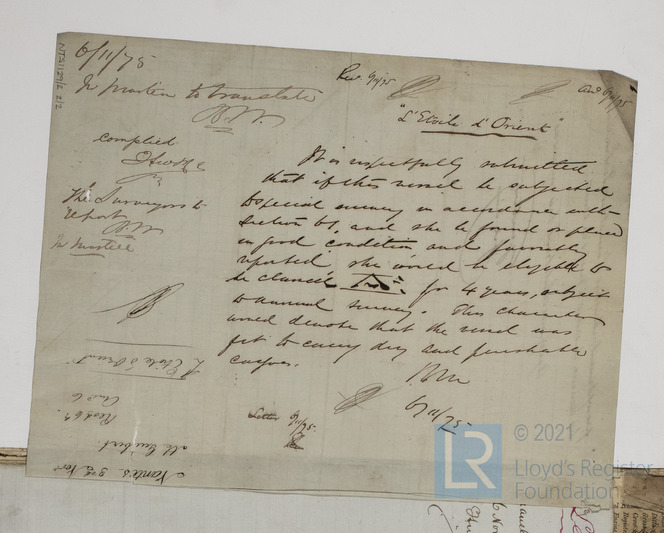 NTS1129/2 2/2
6/11/75
to translate
B.W.
complied
The Surveyors to
report
B.W.
Rec. 6/11/75
ans 6/11/75
"L'Etoile d'Orient"
It is respectfully submitted
that if this vessel be subjected
to special survey in accordance with
Section 61, and she be found or placed
in good condition and favorably
reported she would be eligible to
be classed for 4 years, subject
to annual survey. This character
would denote that the vessel was
fit to carry dry and perishable
cargoes.
6/11/75
Letter 6/11/75
L'Etoile d'Orient
Recd 6th
Ansd 6
Nantes 3rd Nov
© 2021
LR
Lloyd's Register
Foundation